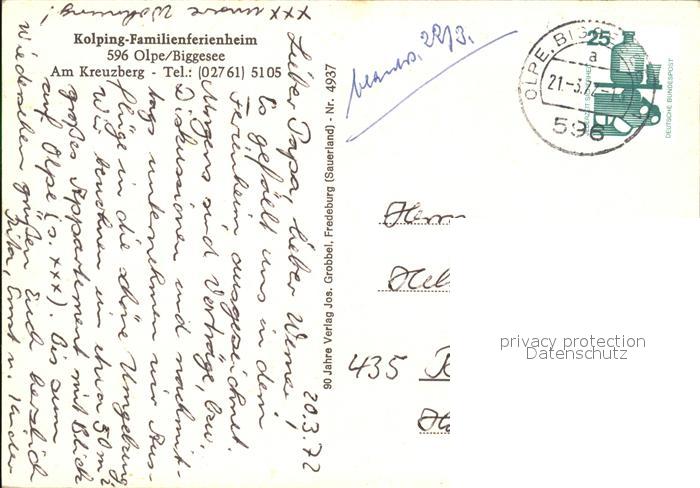 xxx unsere Wohnung!
Kolping-Familienferienheim
596 Olpe/Biggesee
Am Kreuzberg - Tel.: (02761) 5105
20.3.72
Lieber Papa, lieber Werner!
Es gefällt uns in dem
Ferienheim ausgezeichnet.
Morgens sind Vorträge, bzw.
Diskussionen und nachmit-
tags unternehmen wir Aus-
flüge in die schöne Umgebung.
Wir bewohnen ein etwa 50 m²
großes Appartement mit Blick
auf Olpe (s. xxx). Bis zum
Wiedersehen grüßen Euch herzlich
Ernst u. Kinder
90 Jahre Verlag Jos. Grobbel, Fredeburg (Sauerland) - Nr. 4937
beantw. 22/3.
OLPE, BIGGESEE
a
21.-3.72
596
25
DEUTSCHE BUNDESPOST
Herrn
435
privacy protection
Datenschutz